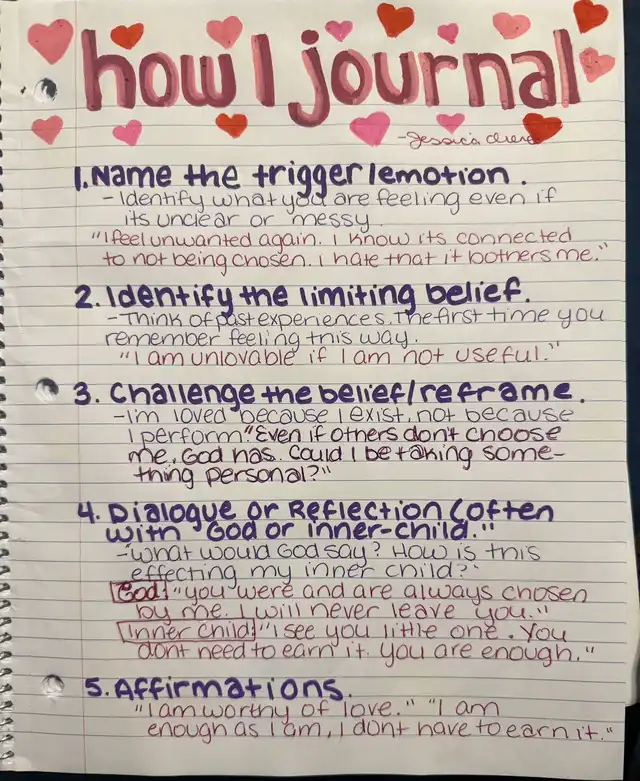 how I journal
-Jessica
1. Name the trigger/emotion.
-Identify what you are feeling even if
its unclear or messy.
"I feel unwanted again. I know its connected
to not being chosen. I hate that it bothers me."
2. Identify the limiting belief.
-Think of past experiences. The first time you
remember feeling this way.
"I am unlovable if I am not useful."
3. Challenge the belief/reframe.
-I'm loved because I exist, not because
I perform "Even if others don't choose
me, God has. Could I be taking some-
thing personal?"
4. Dialogue or Reflection (often
with "God or inner-child."
-"What would God say? How is this
effecting my inner child?"
God: "you were and are always chosen
by me. I will never leave you."
Inner Child: "I see you little one. You
dont need to earn it. you are enough."
5. Affirmations.
"I am worthy of love." "I am
enough as I am, I dont have to earn it."